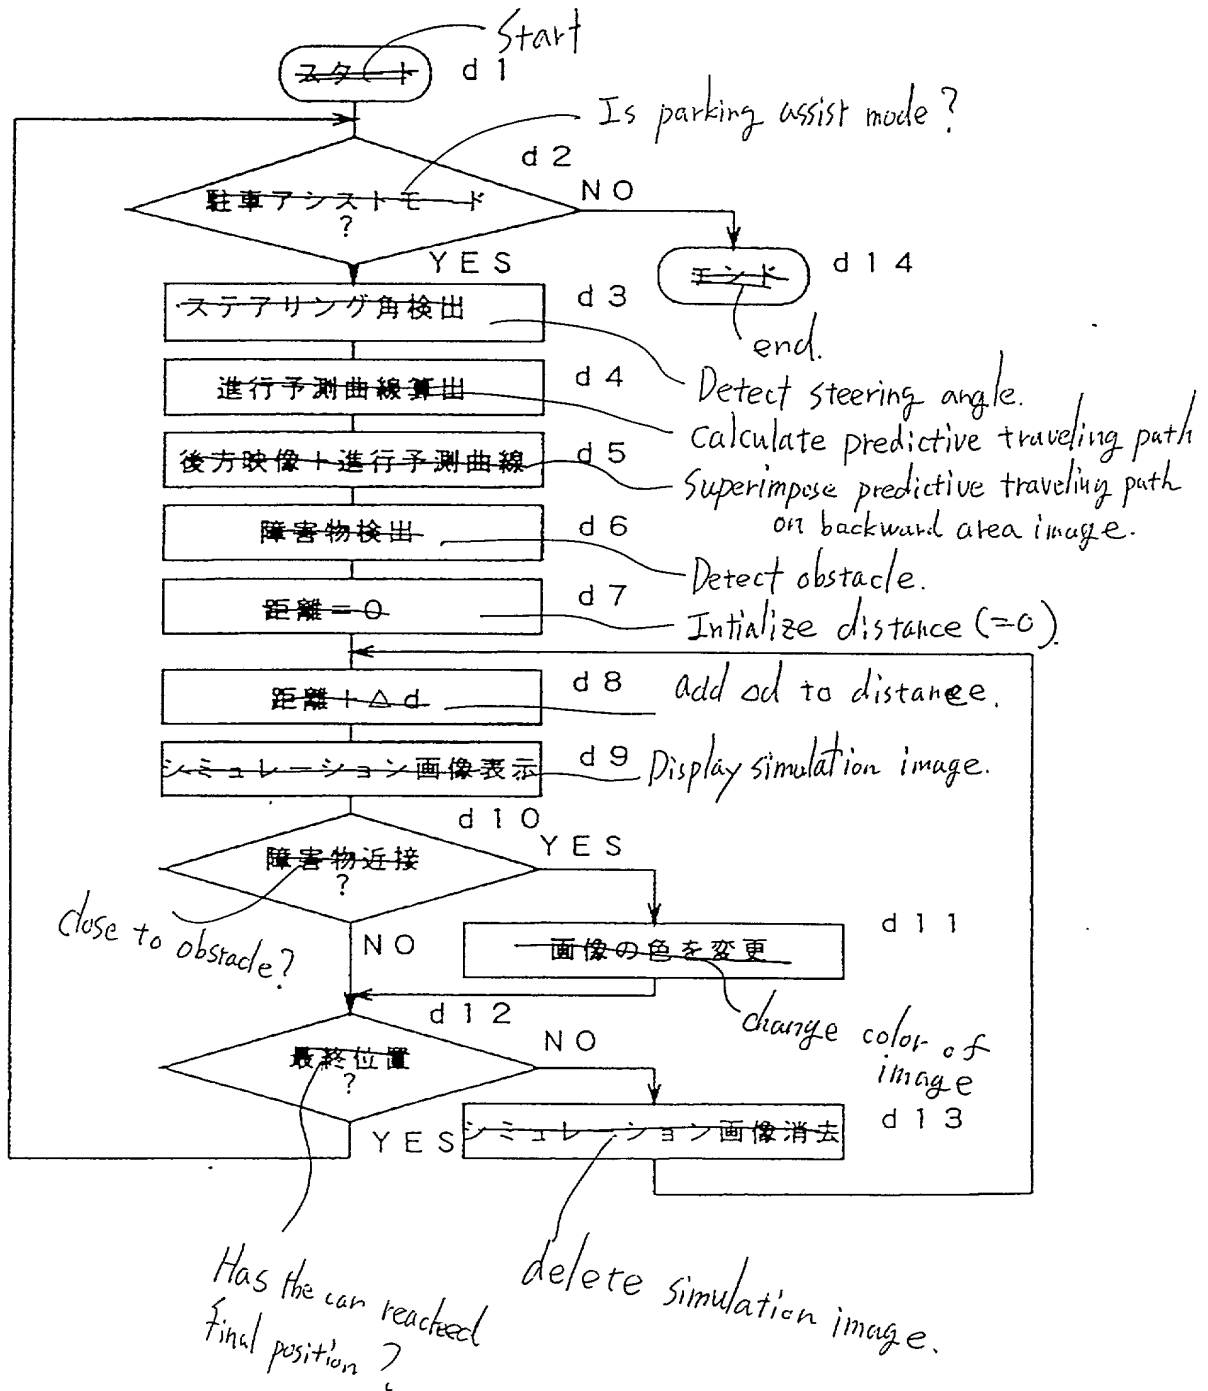 Start
スタート
d1
Is parking assist mode?
d2
駐車アシストモード
?
NO
YES
エンド
d14
end.
ステアリング角検出
d3
Detect steering angle.
進行予測曲線算出
d4
Calculate predictive traveling path
後方映像+進行予測曲線
d5
Superimpose predictive traveling path
on backward area image.
障害物検出
d6
Detect obstacle.
距離=0
d7
Intialize distance (=0).
距離+△d
d8
add △d to distance.
シミュレーション画像表示
d9
Display simulation image.
d10
障害物近接
?
YES
close to obstacle?
NO
d11
画像の色を変更
change color of
image
d12
最終位置
?
NO
YES
d13
シミュレーション画像消去
Has the car reached
final position?
delete simulation image.